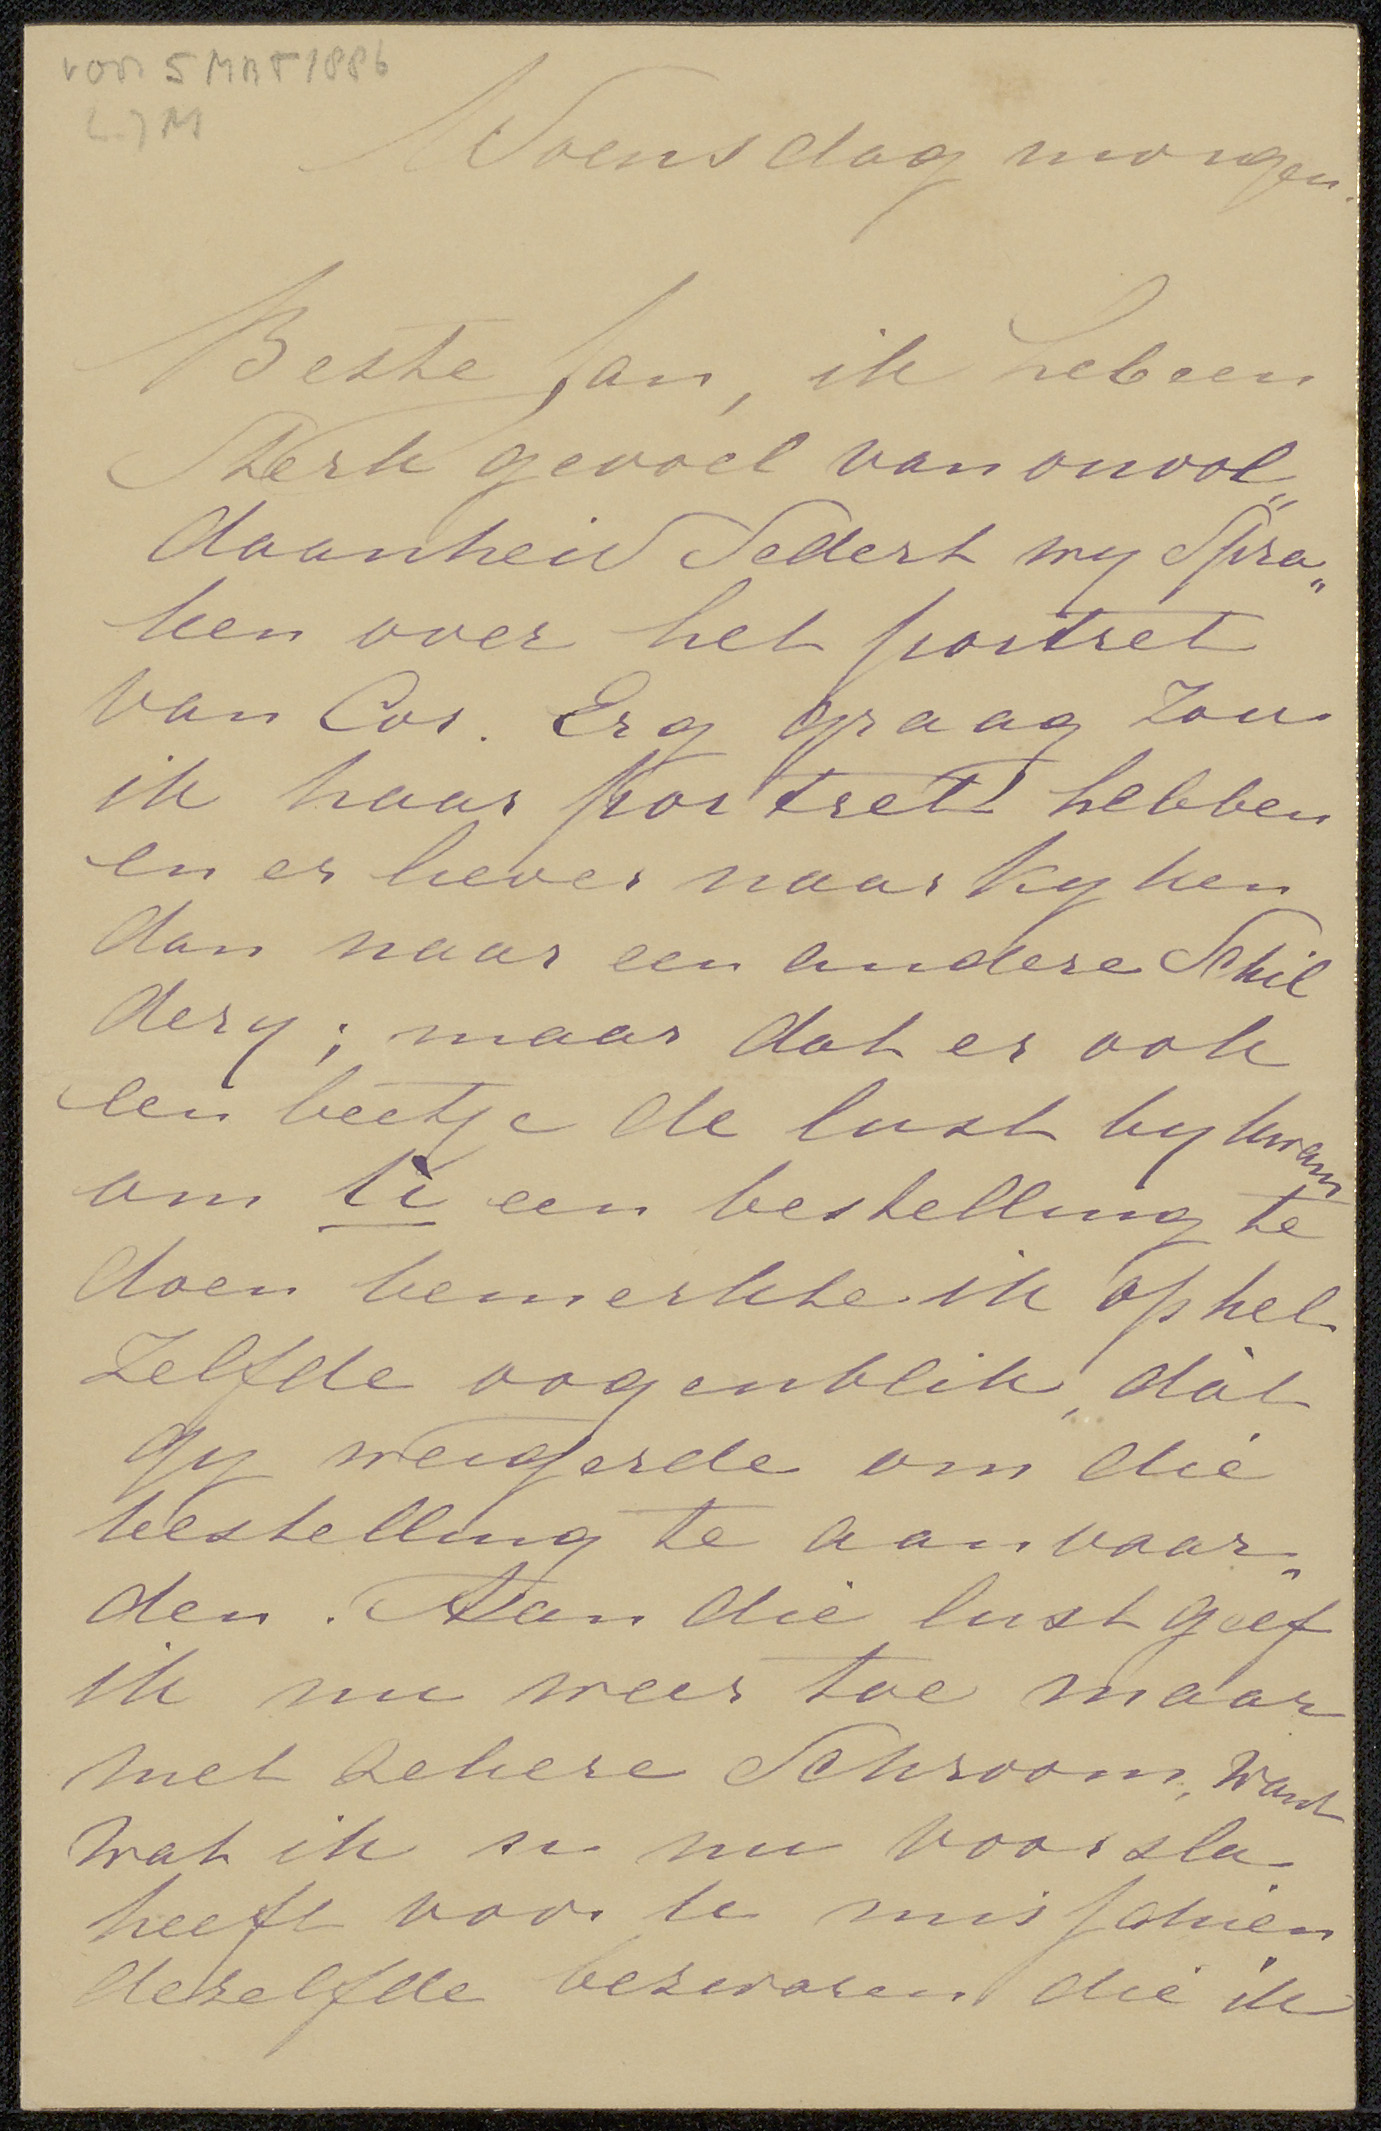 voor 5 MRT 1886
L J M
Woensdag morgen.
Beste Jan, ik heb een
sterk gevoel van onvol„
daanheid sedert wy spra„
ken over het portret
van Cos. Erg graag zou
ik haar portret hebben
en er liever naar kyken
dan naar een andere schil
dery; maar dat er ook
een beetje de lust by kwam
om U een bestelling te
doen bemerkte ik op het
zelfde oogenblik, dat
gy weigerde om die
bestelling te aanvaar„
den. Aan die lust geef
ik nu weer toe maar
met zekere schroom, want
wat ik u nu voorsla
heeft voor u misschien
dezelfde bezwaren die ik